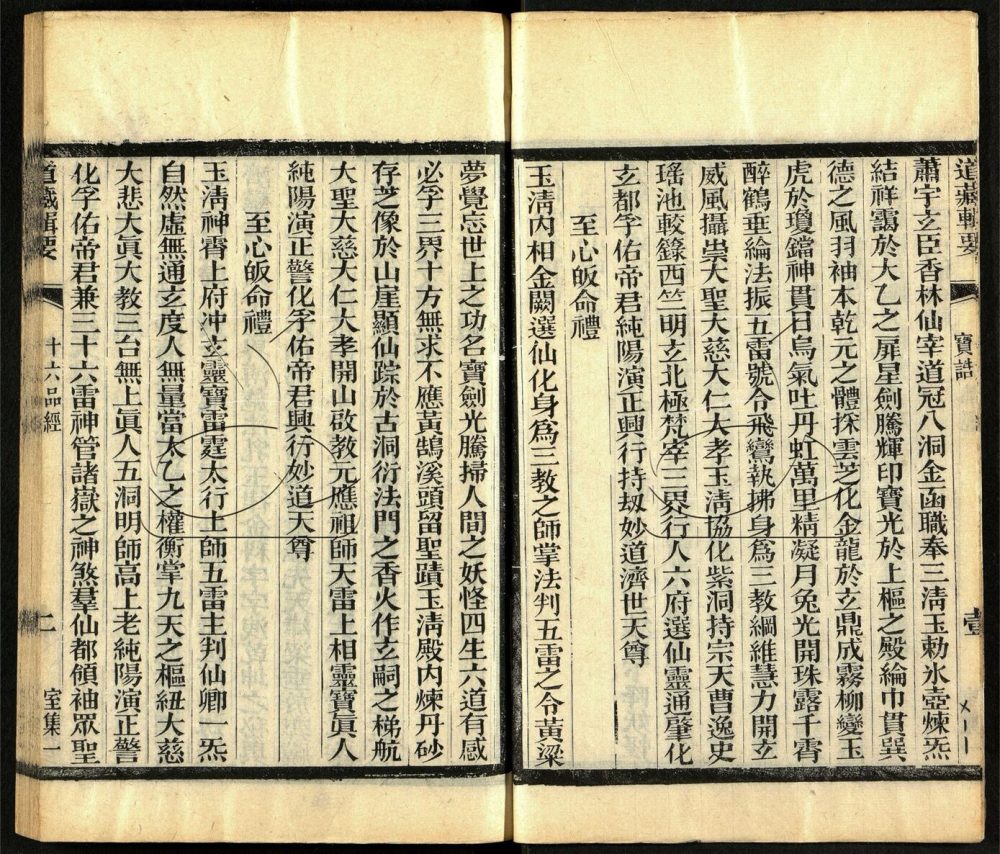 道藏輯要
寶誥
壹
蕭宇玄臣香林仙宰道冠八洞金函職奉三淸玉勅氷壺煉炁
結祥靄於大乙之扉星劍騰輝印寶光於上樞之殿綸巾貫巽
德之風羽袖本乾元之體探雲芝化金龍於玄鼎成霧柳變玉
虎於瓊鐺神貫日烏氣吐丹虹萬里精凝月兔光開珠露千霄
醉鶴垂綸法振五雷號令飛鸞執拂身爲三教綱維慧力開玄
威風攝祟大聖大慈大仁大孝玉淸協化紫洞持宗天曹逸史
瑤池較籙西竺明玄北極梵宰三界行人六府選仙靈通肇化
玄都孚佑帝君純陽演正興行持刼妙道濟世天尊
至心皈命禮
玉淸內相金闕選仙化身爲三教之師掌法判五雷之令黃粱
夢覺忘世上之功名寶劍光騰掃人間之妖怪四生六道有感
必孚三界十方無求不應黃鵠溪頭留聖蹟玉淸殿內煉丹砂
存芝像於山崖顯仙踪於古洞衍法門之香火作玄嗣之梯航
大聖大慈大仁大孝開山啟教元應祖師天雷上相靈寶眞人
純陽演正警化孚佑帝君興行妙道天尊
至心皈命禮
玉淸神霄上府冲玄靈寶雷霆太行土師五雷主判仙卿一炁
自然虛無通玄度人無量當太乙之權衡掌九天之樞紐大慈
大悲大眞大教三台無上眞人五洞明師高上老純陽演正警
化孚佑帝君兼三十六雷神管諸嶽之神煞羣仙都領袖眾聖
道藏輯要
十六品經
二
室集一